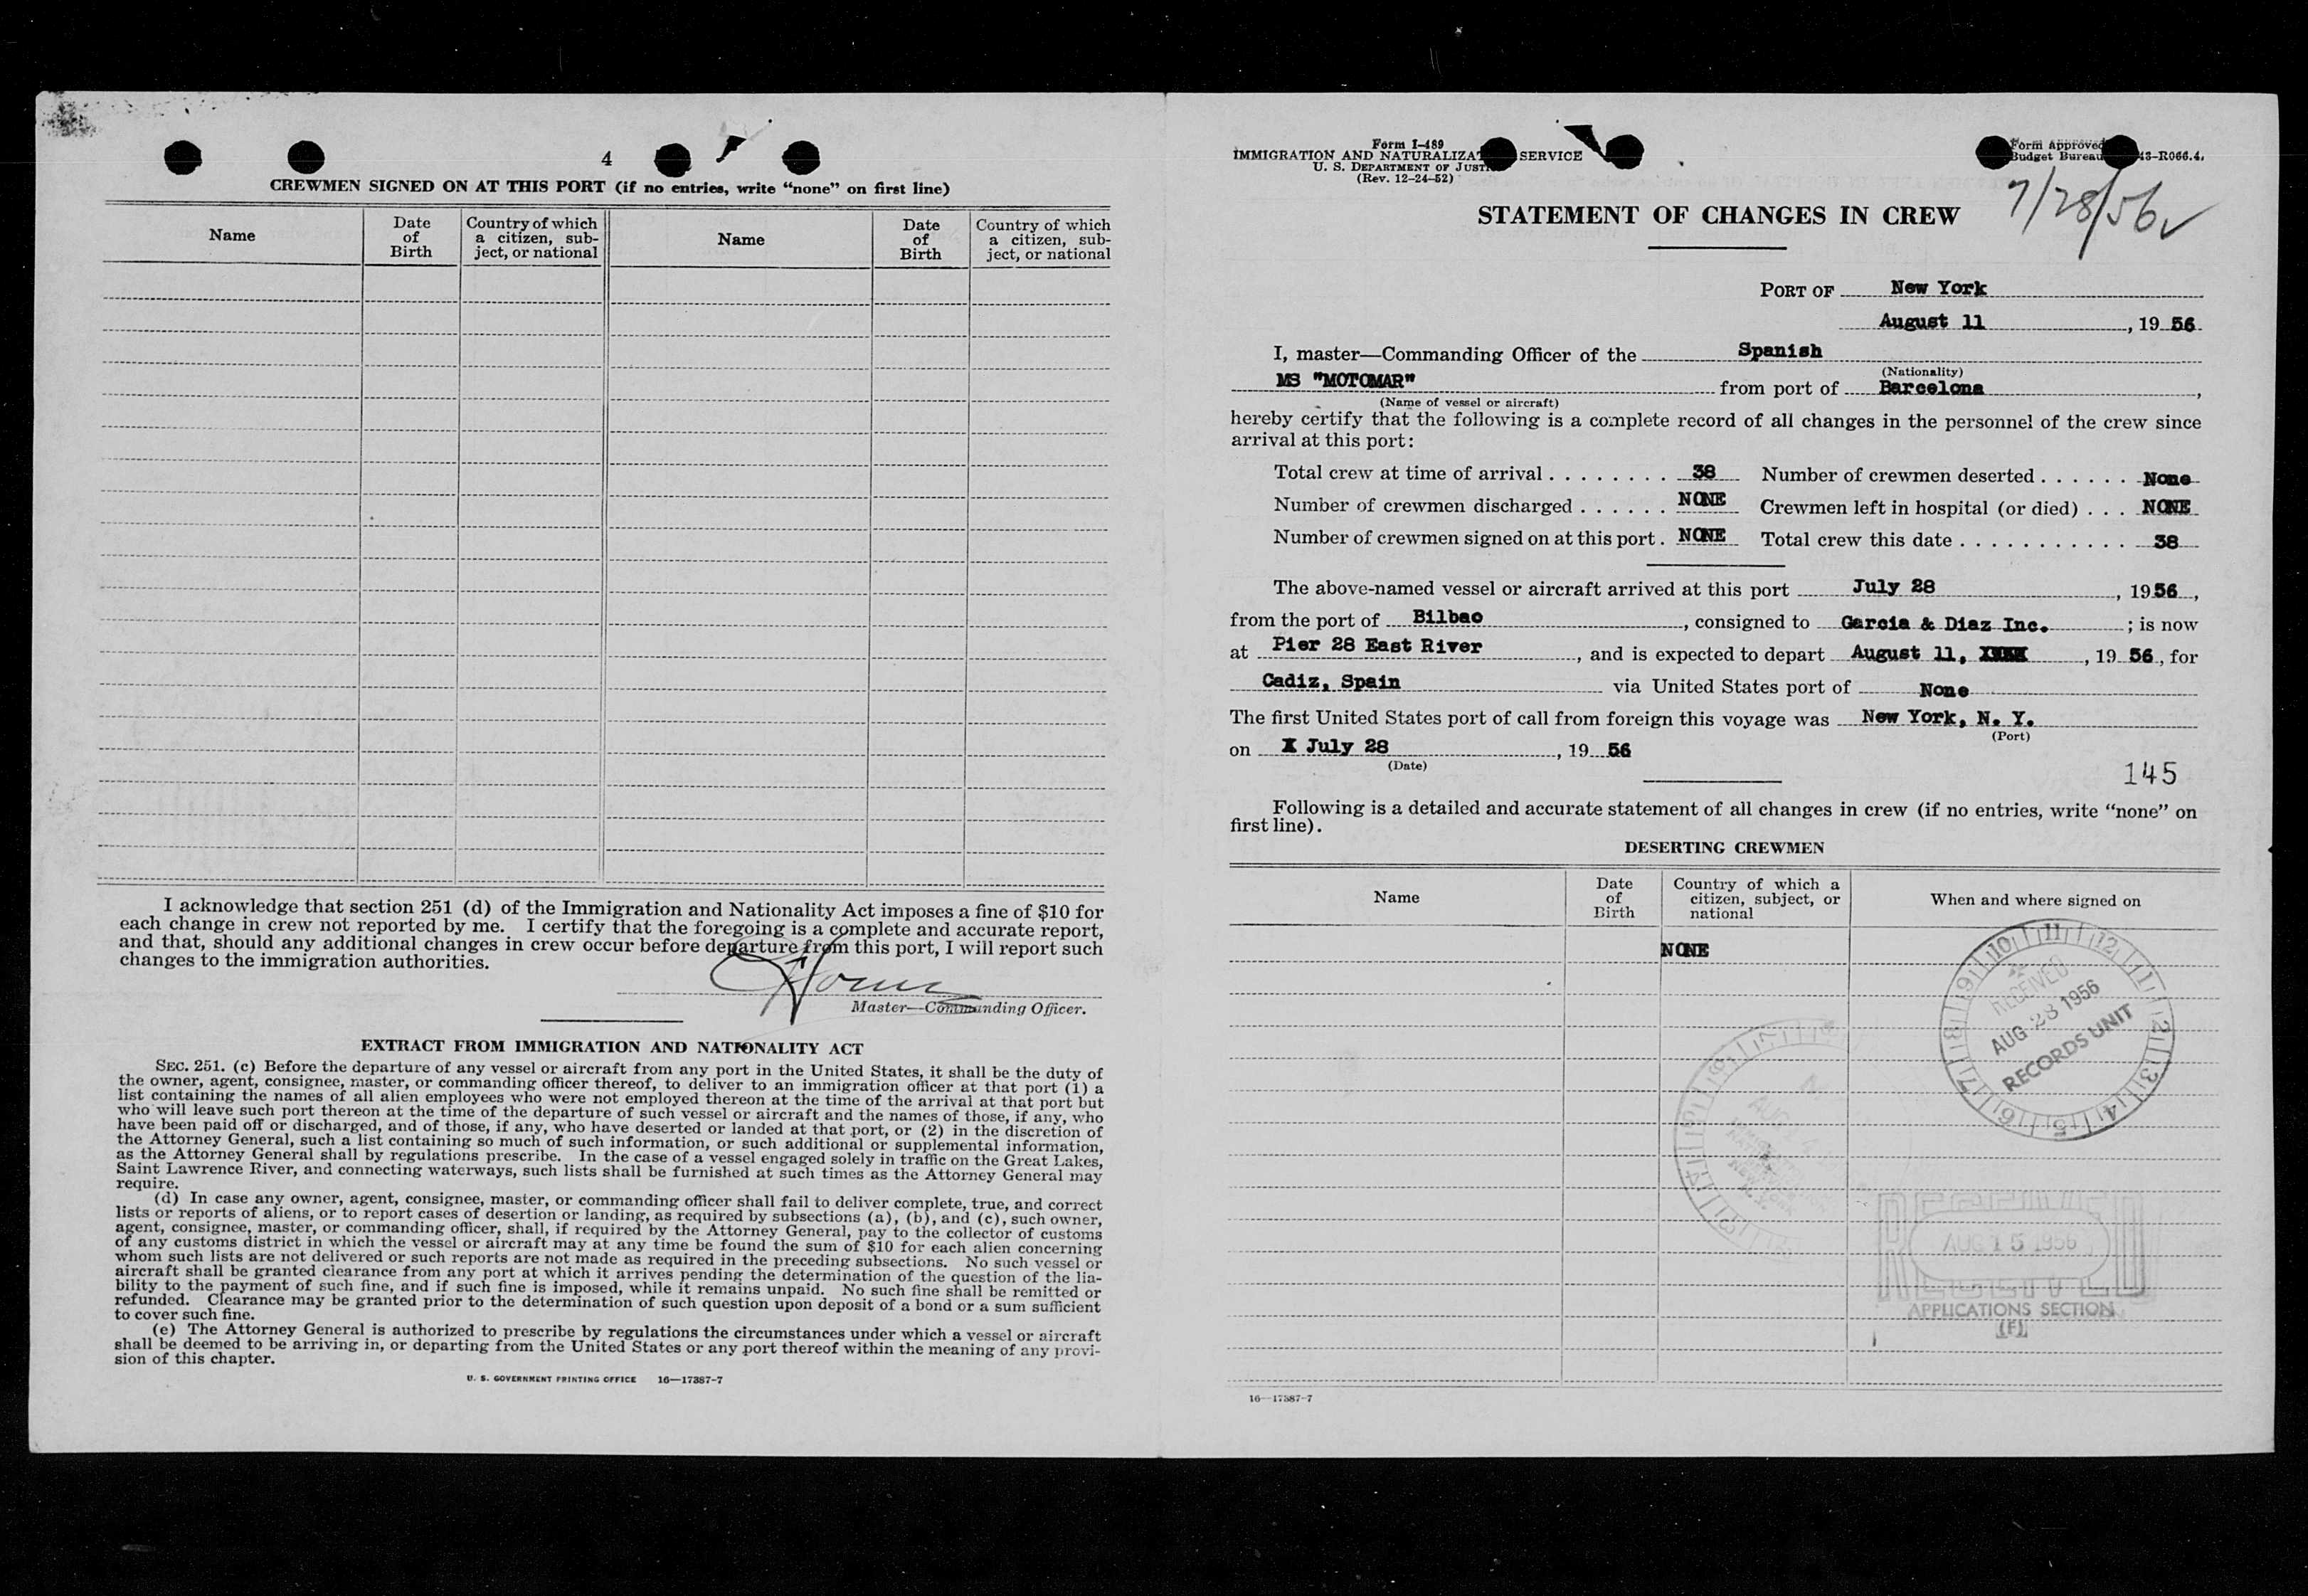 4
CREWMEN SIGNED ON AT THIS PORT (if no entries, write "none" on first line)
Name
Date of Birth
Country of which a citizen, sub-ject, or national
Name
Date of Birth
Country of which a citizen, sub-ject, or national
I acknowledge that section 251 (d) of the Immigration and Nationality Act imposes a fine of $10 for
each change in crew not reported by me. I certify that the foregoing is a complete and accurate report,
and that, should any additional changes in crew occur before departure from this port, I will report such
changes to the immigration authorities.
Master—Commanding Officer.
EXTRACT FROM IMMIGRATION AND NATIONALITY ACT
SEC. 251. (c) Before the departure of any vessel or aircraft from any port in the United States, it shall be the duty of
the owner, agent, consignee, master, or commanding officer thereof, to deliver to an immigration officer at that port (1) a
list containing the names of all alien employees who were not employed thereon at the time of the arrival at that port but
who will leave such port thereon at the time of the departure of such vessel or aircraft and the names of those, if any, who
have been paid off or discharged, and of those, if any, who have deserted or landed at that port, or (2) in the discretion of
the Attorney General, such a list containing so much of such information, or such additional or supplemental information,
as the Attorney General shall by regulations prescribe. In the case of a vessel engaged solely in traffic on the Great Lakes,
Saint Lawrence River, and connecting waterways, such lists shall be furnished at such times as the Attorney General may
require.
(d) In case any owner, agent, consignee, master, or commanding officer shall fail to deliver complete, true, and correct
lists or reports of aliens, or to report cases of desertion or landing, as required by subsections (a), (b), and (c), such owner,
agent, consignee, master, or commanding officer, shall, if required by the Attorney General, pay to the collector of customs
of any customs district in which the vessel or aircraft may at any time be found the sum of $10 for each alien concerning
whom such lists are not delivered or such reports are not made as required in the preceding subsections. No such vessel or
aircraft shall be granted clearance from any port at which it arrives pending the determination of the question of the lia-
bility to the payment of such fine, and if such fine is imposed, while it remains unpaid. No such fine shall be remitted or
refunded. Clearance may be granted prior to the determination of such question upon deposit of a bond or a sum sufficient
to cover such fine.
(e) The Attorney General is authorized to prescribe by regulations the circumstances under which a vessel or aircraft
shall be deemed to be arriving in, or departing from the United States or any port thereof within the meaning of any provi-
sion of this chapter.
U. S. GOVERNMENT PRINTING OFFICE 16—17387-7
Form I-489
IMMIGRATION AND NATURALIZAT SERVICE
U. S. DEPARTMENT OF JUSTI
(Rev. 12-24-52)
Form approved
Budget Bureau 43-R066.4.
7/28/56
STATEMENT OF CHANGES IN CREW
PORT OF New York
August 11, 19 56
I, master—Commanding Officer of the Spanish
(Nationality)
MS "MOTOMAR" from port of Barcelona,
(Name of vessel or aircraft)
hereby certify that the following is a complete record of all changes in the personnel of the crew since
arrival at this port:
Total crew at time of arrival . . . . . . . . 38 Number of crewmen deserted . . . . . . None
Number of crewmen discharged . . . . . . NONE Crewmen left in hospital (or died) . . . NONE
Number of crewmen signed on at this port . NONE Total crew this date . . . . . . . . . . . 38
The above-named vessel or aircraft arrived at this port July 28, 1956,
from the port of Bilbao, consigned to Garcia & Diaz Inc. ; is now
at Pier 28 East River, and is expected to depart August 11, XXXX, 19 56, for
Cadiz, Spain via United States port of None
The first United States port of call from foreign this voyage was New York, N. Y.
(Port)
on X July 28, 19 56
(Date)
145
Following is a detailed and accurate statement of all changes in crew (if no entries, write "none" on
first line).
DESERTING CREWMEN
Name
Date of Birth
Country of which a citizen, subject, or national
When and where signed on
NONE
RECEIVED
AUG 28 1956
RECORDS UNIT
RECEIVED
AUG 15 1956
APPLICATIONS SECTION
(F)
16—17387-7